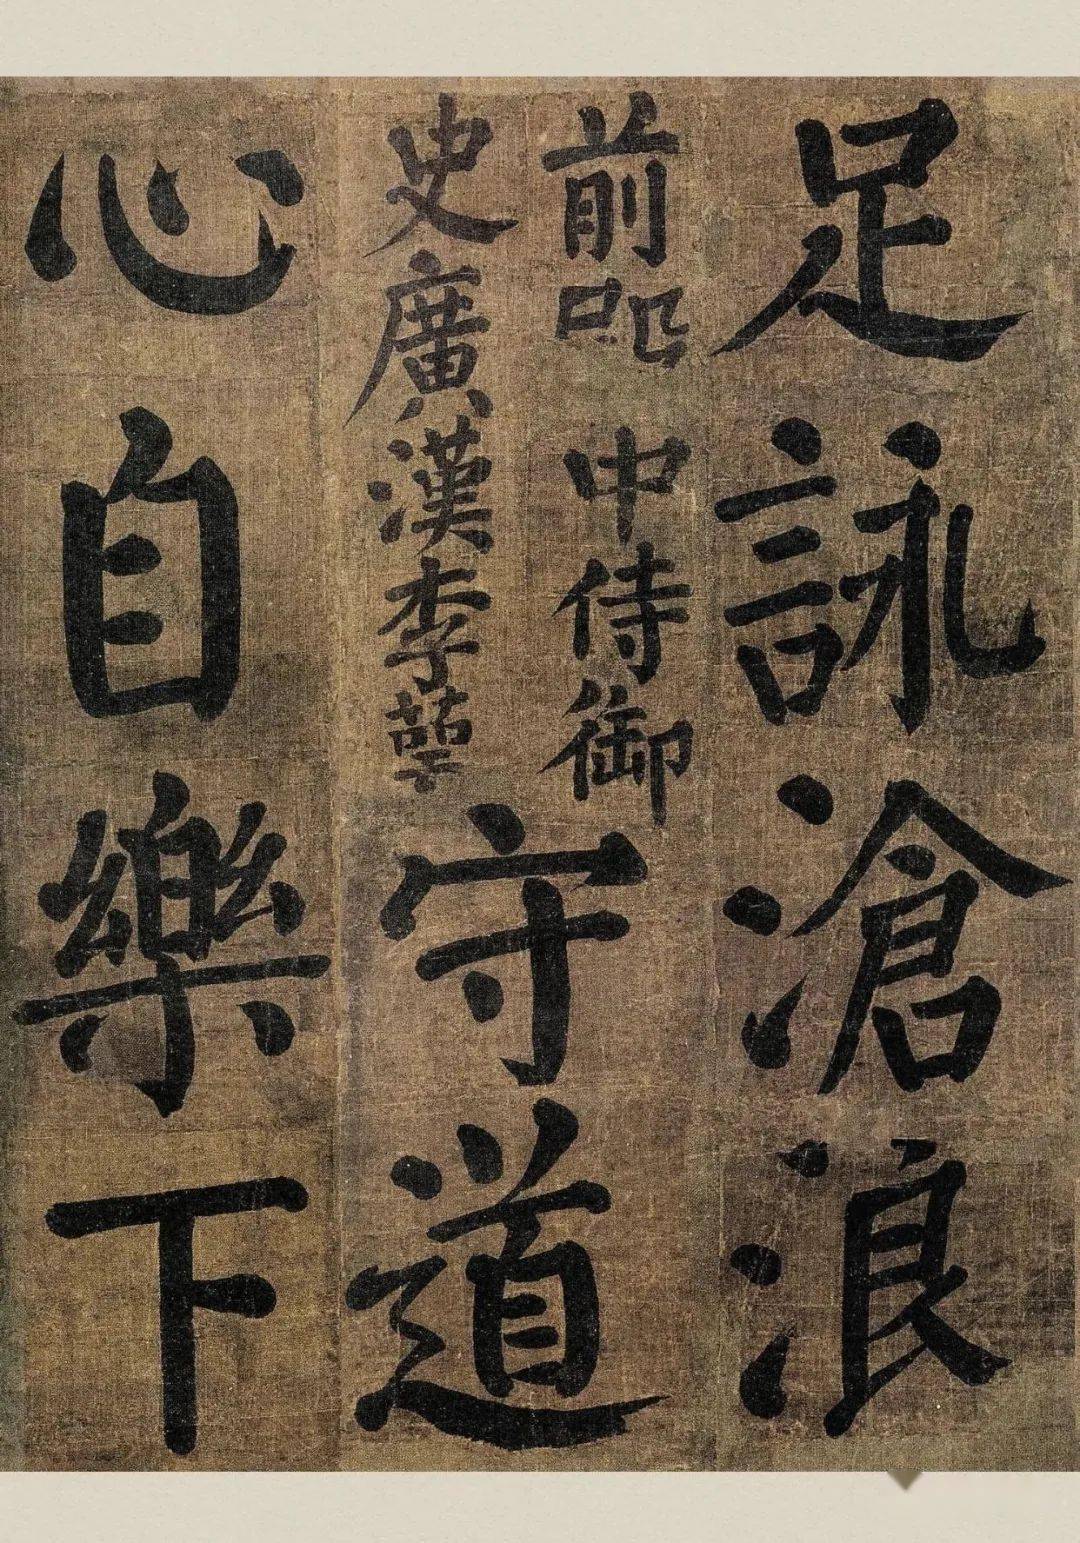 足詠滄浪
前 中侍御
史廣漢李萼
守道
心自樂下